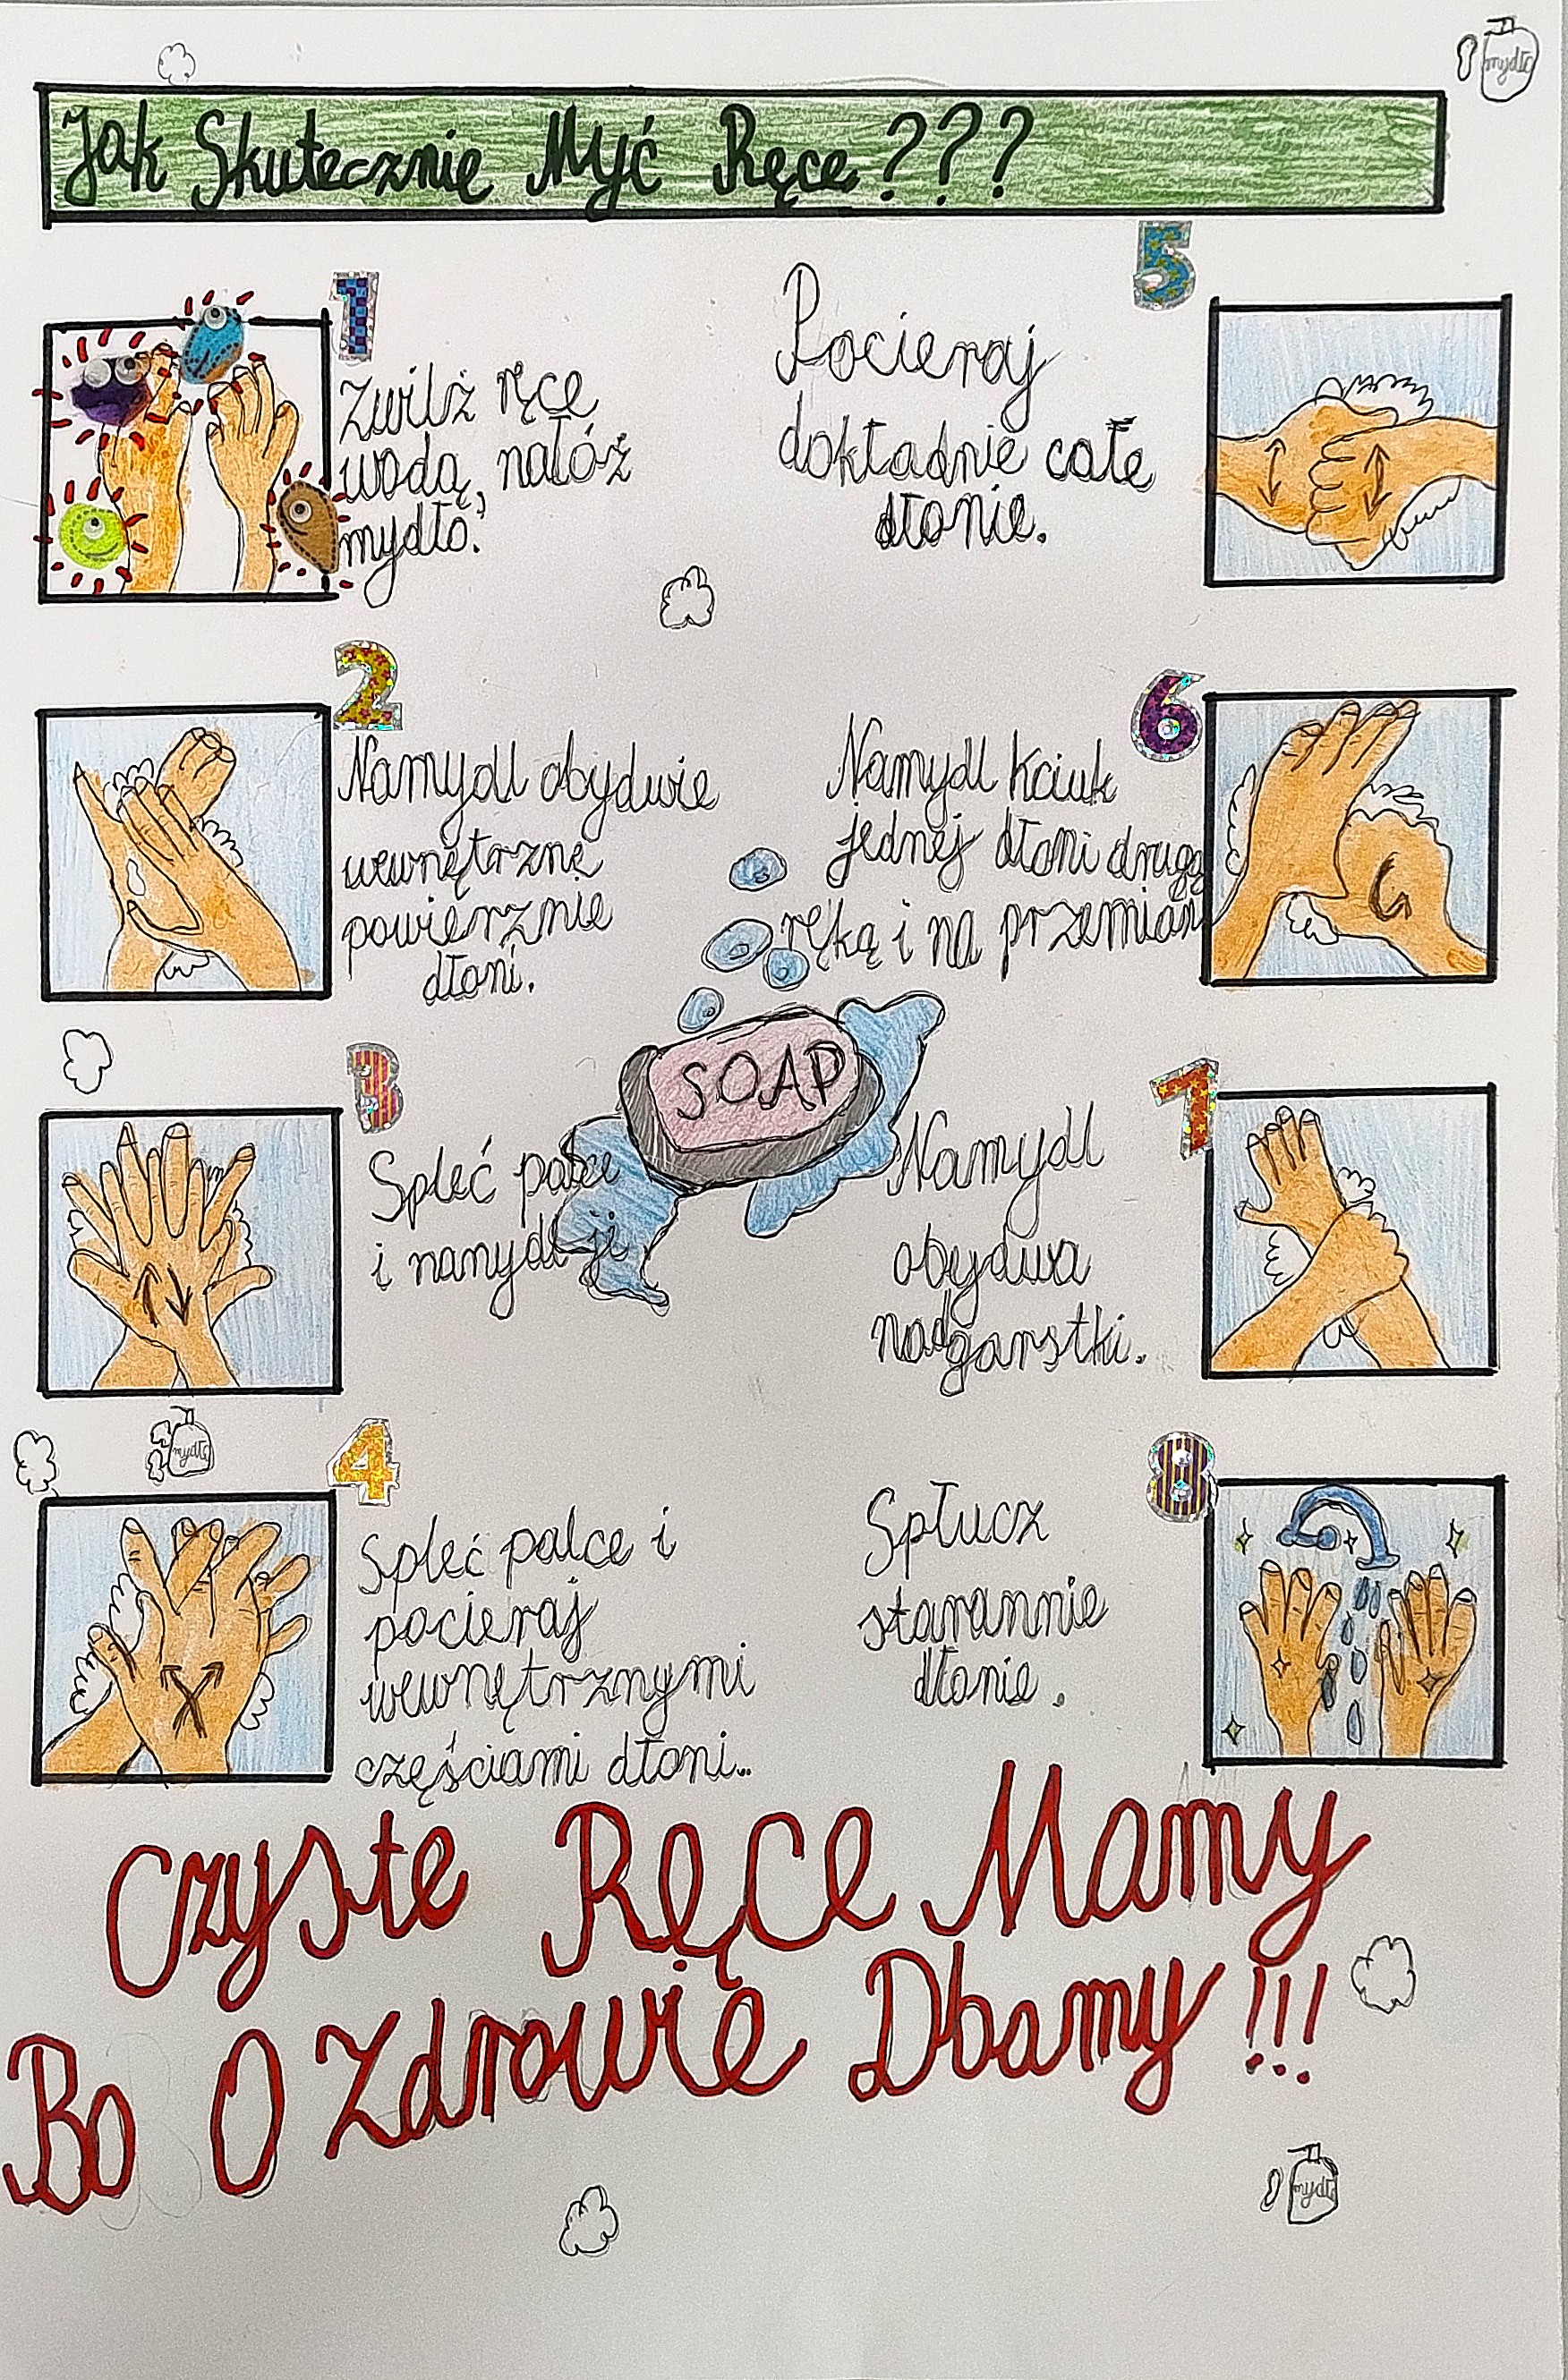 mydło
Jak Skutecznie Myć Ręce???
1
Zwilż ręce
wodą, nałóż
mydło.
2
Namydl obydwie
wewnętrzne
powierznie
dłoni.
3
Spleć palce
i namydl ji
4
Spleć palce i
pocieraj
wewnętrznymi
częściami dłoni..
5
Pocieraj
dokładnie całe
dłonie.
6
Namydl kciuk
jednej dłoni drugą
ręką i na przemian
SOAP
7
Namydl
obydwa
nadgarstki.
8
Spłucz
starannie
dłonie.
mydło
Czyste Ręce Mamy
Bo O Zdrowie Dbamy!!!
mydło